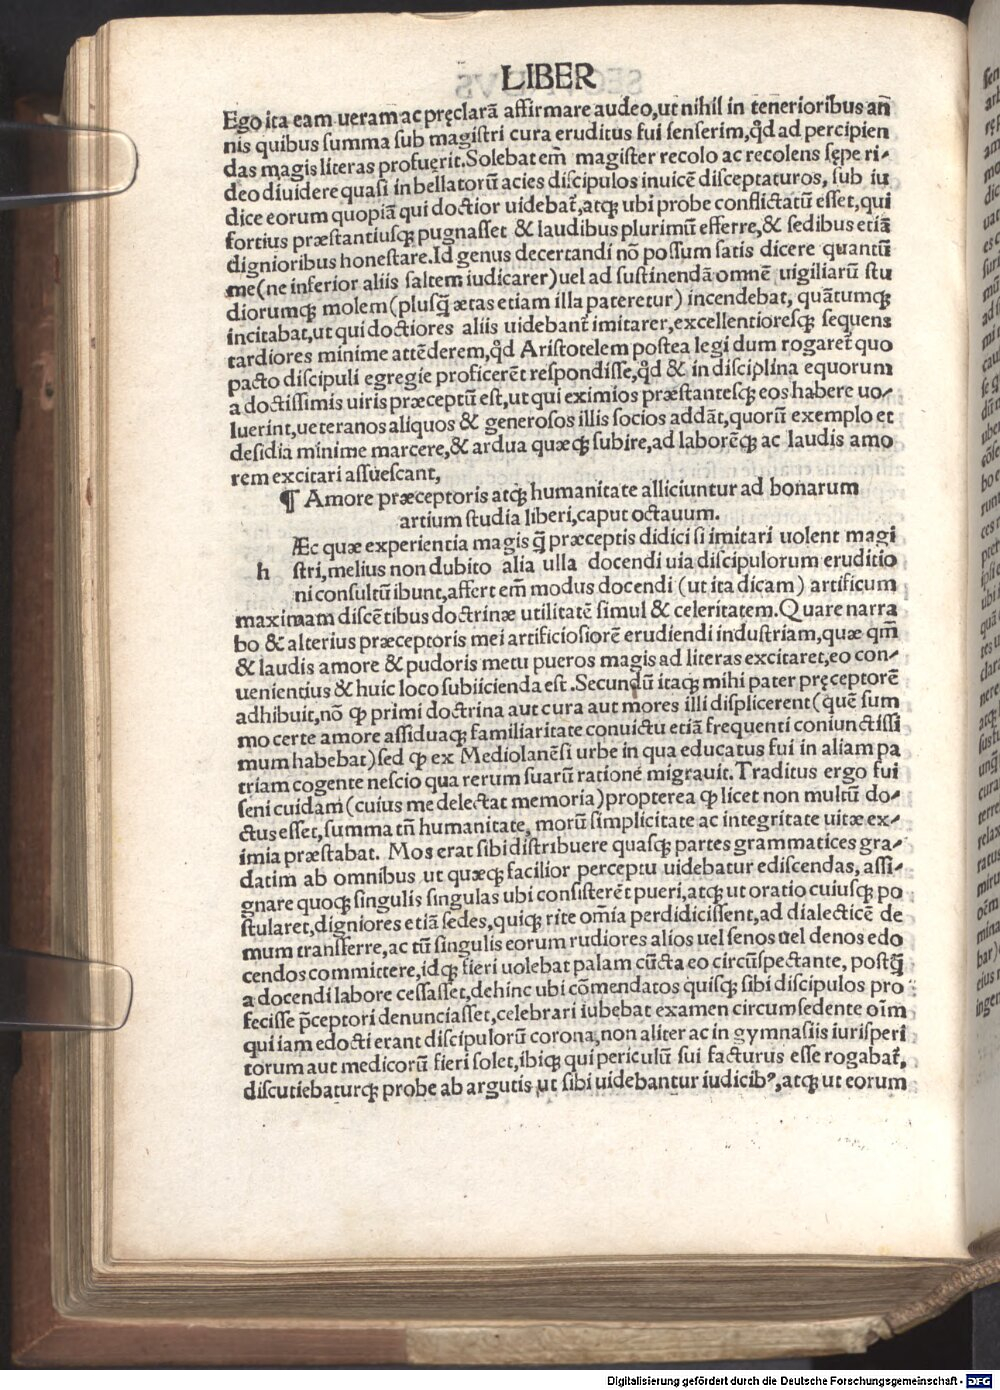 LIBER
Ego ita eam ueram ac pręclarā affirmare audeo,ut nihil in tenerioribus an̄
nis quibus summa sub magistri cura eruditus fui senserim,ꝙd ad percipien
das magis literas profuerit.Solebat em̄ magister recolo ac recolens sępe ri⸗
deo diuidere quasi in bellatorū acies discipulos inuicē disceptaturos, sub iu
dice eorum quopiā qui doctior uidebat̄,atqꝫ ubi probe conflictatū esset,qui
fortius præstantiusqꝫ pugnasset & laudibus plurimū efferre,& sedibus etiā
dignioribus honestare.Id genus decertandi nō possum satis dicere quantū
me(ne inferior aliis saltem iudicarer)uel ad sustinendā omnē uigiliarū stu
diorumqꝫ molem(plusq̄ ætas etiam illa pateretur) incendebat, quātumqꝫ
incitabat,ut qui doctiores aliis uidebant̄ imitarer,excellentioresqꝫ sequens
tardiores minime attēderem,ꝙd Aristotelem postea legi dum rogaret̄ quo
pacto discipuli egregie proficerēt respondisse,ꝙd & in disciplina equorum
a doctissimis uiris præceptū est,ut qui eximios præstantesqꝫ eos habere uo⸗
luerint,ueteranos aliquos & generosos illis socios addāt,quorū exemplo et
desidia minime marcere,& ardua quæqꝫ subire,ad laborēqꝫ ac laudis amo
rem excitari assuescant,
¶ Amore præceptoris atqꝫ humanitate alliciuntur ad bonarum
artium studia liberi,caput octauum.
Æc quæ experientia magis q̄ præceptis didici si imitari uolent magi
h stri,melius non dubito alia ulla docendi uia discipulorum eruditio
ni consultū ibunt,affert em̄ modus docendi (ut ita dicam) artificum
maximam discētibus doctrinæ utilitatē simul & celeritatem.Quare narra
bo & alterius præceptoris mei artificiosiorē erudiendi industriam,quæ qm̄
& laudis amore & pudoris metu pueros magis ad literas excitaret,eo con⸗
uenientius & huic loco subiicienda est.Secundū itaqꝫ mihi pater pręceptorē
adhibuit,nō ꝙ primi doctrina aut cura aut mores illi displicerent(quē sum
mo certe amore assiduaqꝫ familiaritate conuictu etiā frequenti coniunctissi
mum habebat)sed ꝙ ex Mediolanēsi urbe in qua educatus fui in aliam pa
triam cogente nescio qua rerum suarū rationé migrauit.Traditus ergo fui
seni cuidam(cuius me delectat memoria)propterea ꝙ licet non multū do⸗
ctus esset,summa tn̄ humanitate, morū simplicitate ac integritate uitæ ex⸗
imia præstabat. Mos erat sibi distribuere quasqꝫ partes grammatices gra⸗
datim ab omnibus ut quæqꝫ facilior perceptu uidebatur ediscendas, assi⸗
gnare quoqꝫ singulis singulas ubi consisterēt pueri,atqꝫ ut oratio cuiusqꝫ po
stularet,digniores etiā sedes,quiqꝫ rite om̄ia perdidicissent,ad dialecticē de
mum transferre,ac tū singulis eorum rudiores alios uel senos uel denos edo
cendos committere,idqꝫ fieri uolebat palam cūcta eo circūspectante, postq̄
a docendi labore cessasset,dehinc ubi cōmendatos quisqꝫ sibi discipulos pro
fecisse p̄ceptori denunciasset,celebrari iubebat examen circumsedente oīm
qui iam edocti erant discipulorū corona,non aliter ac in gymnasiis iurisperi
torum aut medicorū fieri solet,ibiqꝫ qui periculū sui facturus esse rogabat̄,
discutiebaturqꝫ probe ab argutis ut sibi uidebantur iudicibꝰ,atqꝫ ut eorum
Digitalisierung gefördert durch die Deutsche Forschungsgemeinschaft - DFG